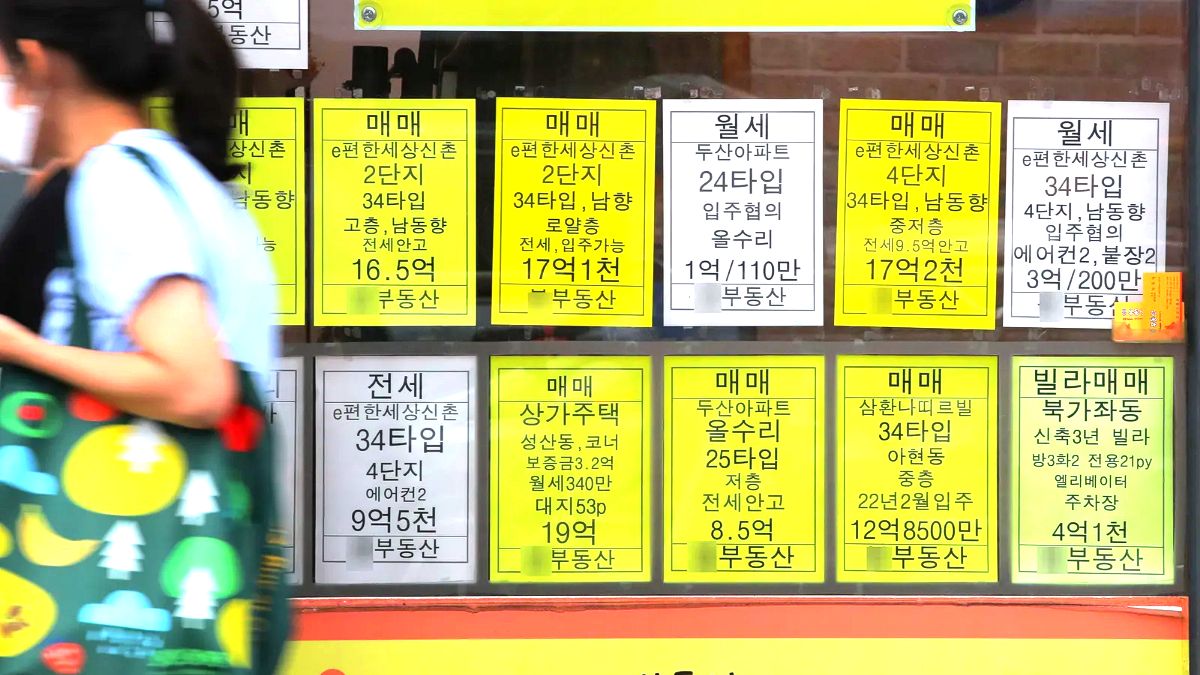 5억
부동산
매
상신촌
지
남동향
매매
e편한세상신촌
2단지
34타입
고층,남동향
전세안고
16.5억
부동산
매매
e편한세상신촌
2단지
34타입,남향
로얄층
전세,입주가능
17억1천
부동산
월세
두산아파트
24타입
입주협의
올수리
1억/110만
부동산
매매
e편한세상신촌
4단지
34타입,남동향
중저층
전세9.5억안고
17억2천
부동산
월세
e편한세상신촌
34타입
4단지,남동향
입주협의
에어컨2,붙장2
3억/200만
부동산
전세
e편한세상신촌
34타입
4단지
에어컨2
9억5천
부동산
매매
상가주택
성산동,코너
보증금3.2억
월세340만
대지53p
19억
부동산
매매
두산아파트
올수리
25타입
저층
전세안고
8.5억
부동산
매매
삼환나띠르빌
34타입
아현동
중층
22년2월입주
12억8500만
부동산
빌라매매
북가좌동
신축3년 빌라
방3화2 전용21py
엘리베이터
주차장
4억1천
부동산